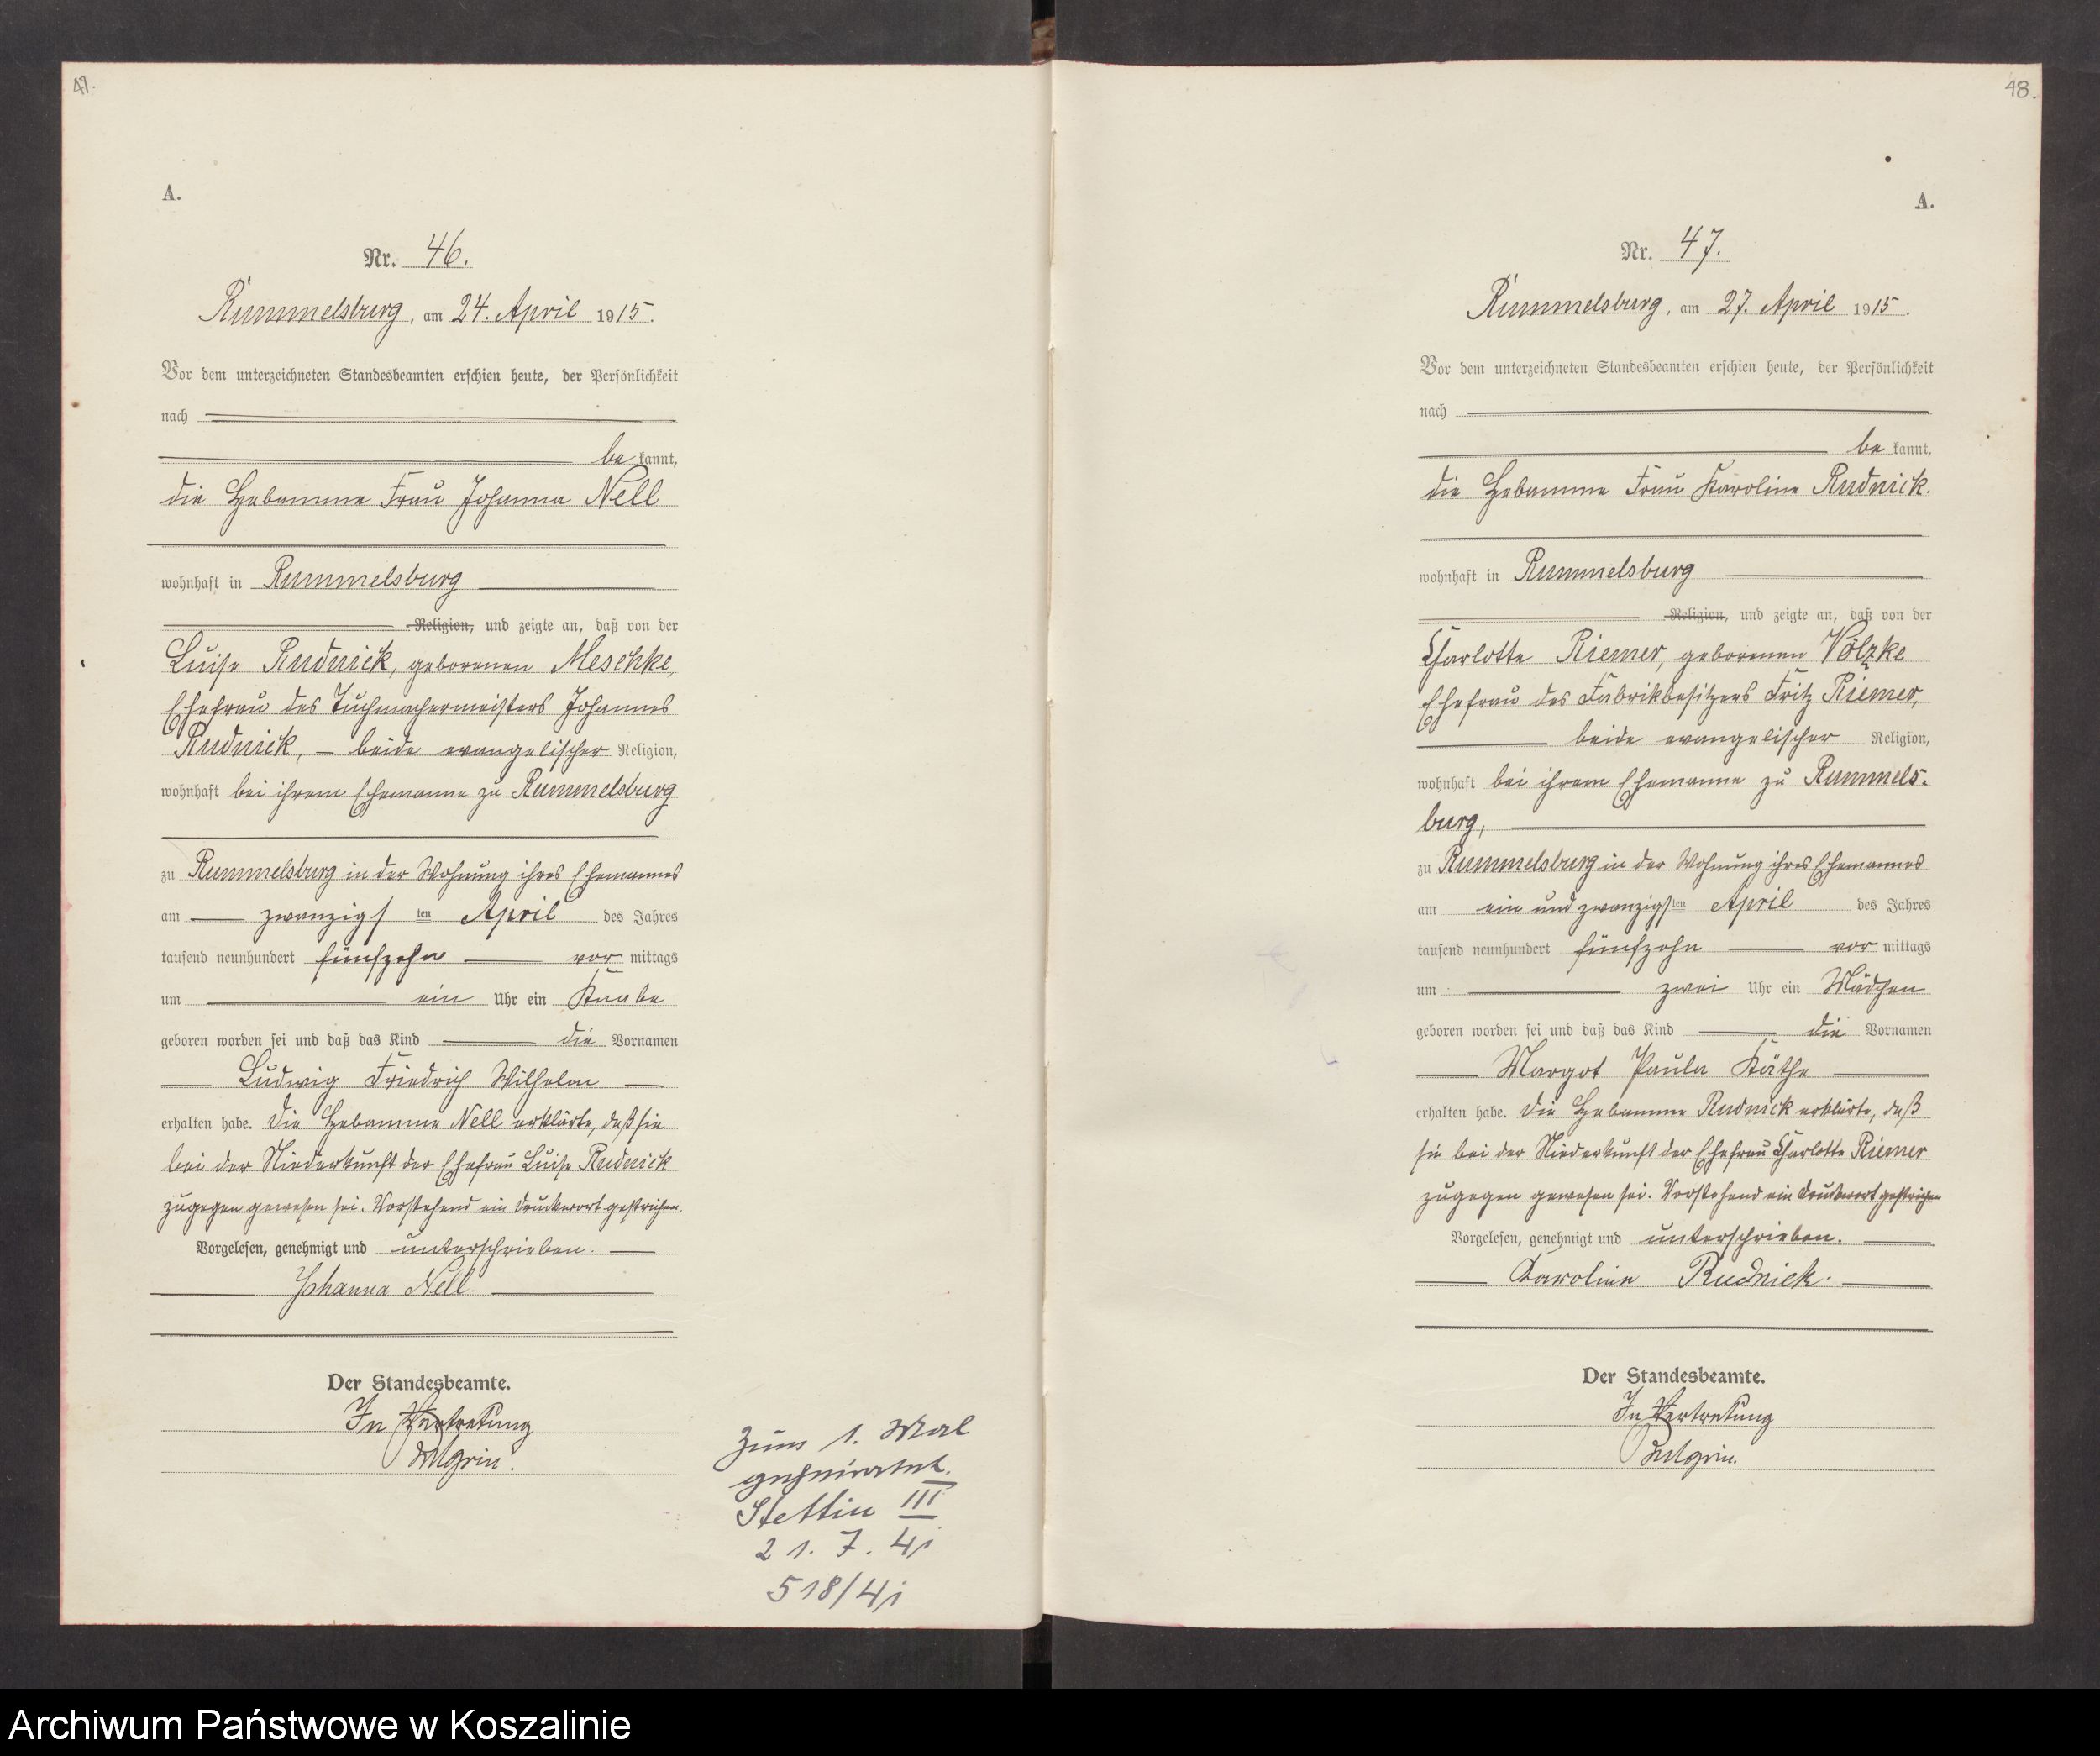 47.
A.
Nr. 46.
Rummelsburg, am 24. April 1915.
Vor dem unterzeichneten Standesbeamten erschien heute, der Persönlichkeit
nach
be kannt,
die Hebamme Frau Johanna Nell
wohnhaft in Rummelsburg
Religion, und zeigte an, daß von der
Luise Rudnick, geborenen Meschke,
Ehefrau des Tuchmachermeisters Johannes
Rudnick, — beide evangelischer Religion,
wohnhaft bei ihrem Ehemanne zu Rummelsburg
zu Rummelsburg in der Wohnung ihres Ehemannes
am zwanzigsten April des Jahres
tausend neunhundert fünfzehn vor mittags
um ein Uhr ein Knabe
geboren worden sei und daß das Kind die Vornamen
Ludwig Friedrich Wilhelm
erhalten habe. Die Hebamme Nell erklärte, daß sie
bei der Niederkunft der Ehefrau Luise Rudnick
zugegen gewesen sei. Vorstehend ein Druckwort gestrichen.
Vorgelesen, genehmigt und unterschrieben.
Johanna Nell.
Der Standesbeamte.
In Vertretung
Zum 1. Mal
geheiratet.
Stettin III
21. 7. 41
518/41
48.
A.
Nr. 47.
Rummelsburg, am 27. April 1915.
Vor dem unterzeichneten Standesbeamten erschien heute, der Persönlichkeit
nach
be kannt,
die Hebamme Frau Karoline Rudnick.
wohnhaft in Rummelsburg
Religion, und zeigte an, daß von der
Charlotte Riemer, geborenen Völzke
Ehefrau des Fabrikbesitzers Fritz Riemer,
beide evangelischer Religion,
wohnhaft bei ihrem Ehemanne zu Rummels-
burg,
zu Rummelsburg in der Wohnung ihres Ehemannes
am ein und zwanzigsten April des Jahres
tausend neunhundert fünfzehn vor mittags
um zwei Uhr ein Mädchen
geboren worden sei und daß das Kind die Vornamen
Margot Paula Käthe
erhalten habe. Die Hebamme Rudnick erklärte, daß
sie bei der Niederkunft der Ehefrau Charlotte Riemer
zugegen gewesen sei. Vorstehend ein Druckwort gestrichen
Vorgelesen, genehmigt und unterschrieben.
Karoline Rudnick.
Der Standesbeamte.
In Vertretung
Archiwum Państwowe w Koszalinie